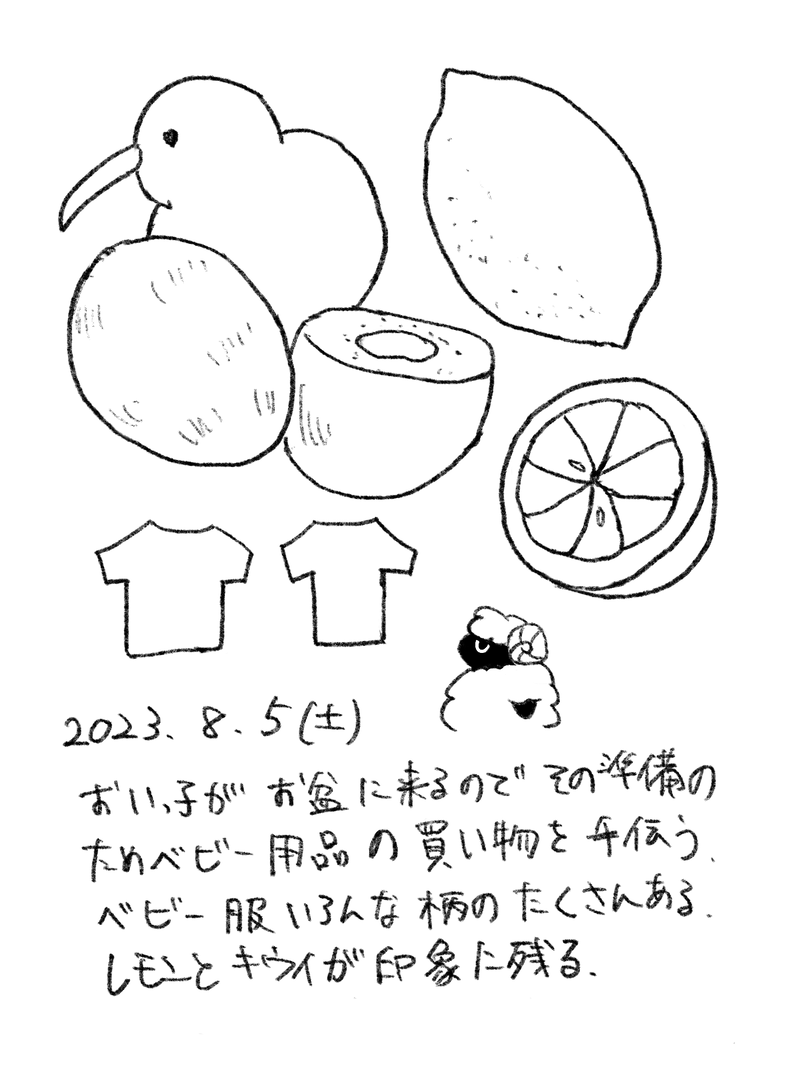 2023. 8. 5(土)
おいっ子が お盆に来るので その準備の
ためベビー用品の買い物を手伝う.
ベビー服いろんな柄のたくさんある.
レモンとキウイが印象に残る.